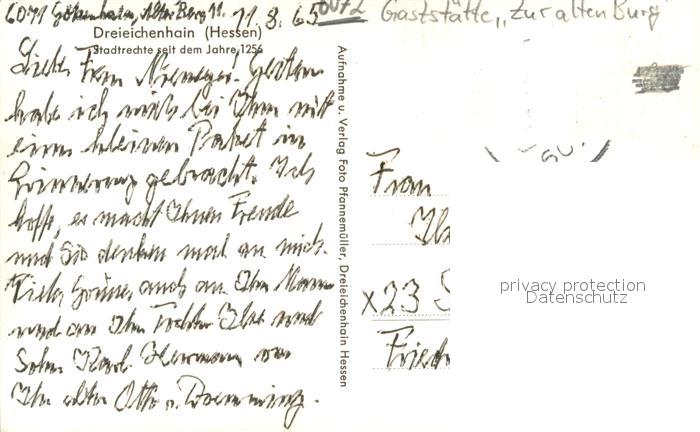 11.8.65 Gaststätte „Zur alten Burg"
Dreieichenhain (Hessen)
Stadtrechte seit dem Jahre 1256
Frau! Gestern
habe ich mich bei Ihnen mit
einem kleinen Paket in
Erinnerung gebracht. Ich
hoffe, es macht Ihnen Freude
und Sie denken mal an mich.
Viele Grüße, auch an Ihren Mann
und an Ihre Tochter und
Sohn Karl Hermann von
Ihr alter Otto v.
Aufnahme u. Verlag Foto Pfannemüller, Dreieichenhain Hessen
Frau
x23 S
Fried
privacy protection
Datenschutz